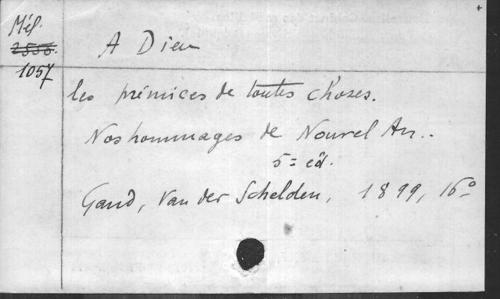 Mél.
2556.
1057
A Dieu
les prémices de toutes choses.
Nos hommages de Nouvel An..
5e éd.
Gand, Van der Schelden, 1899, 16º